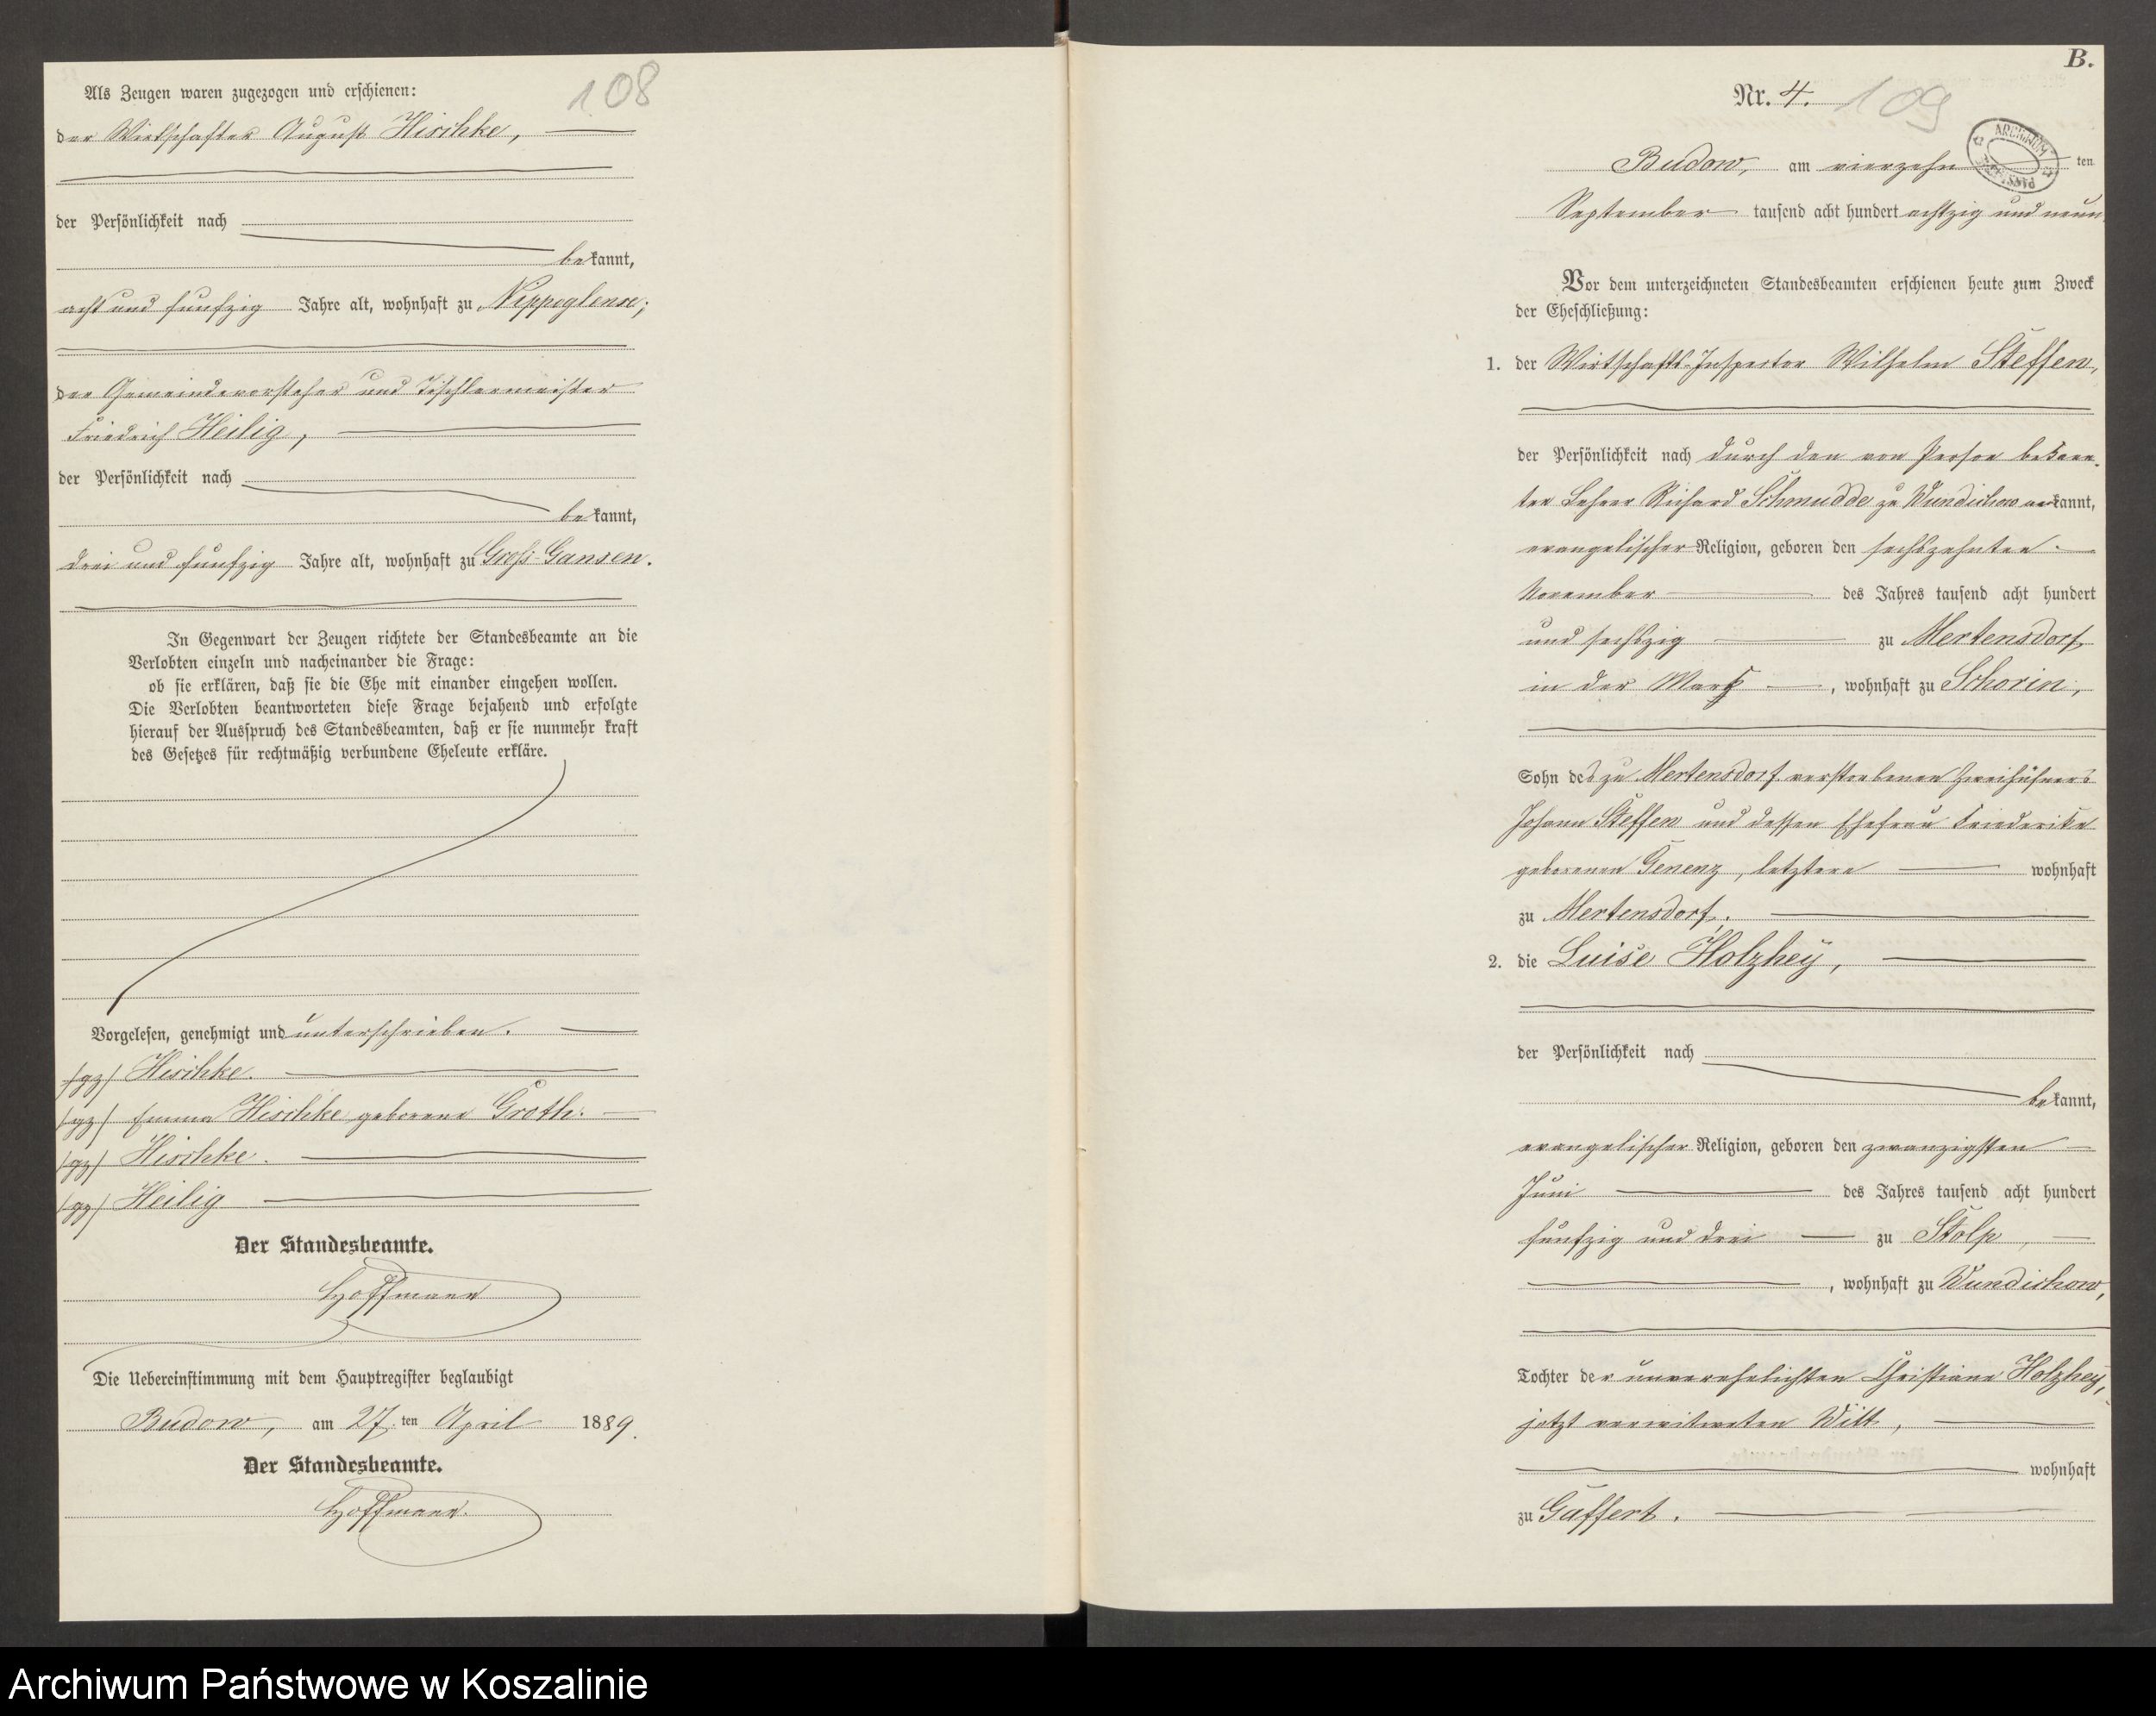 108
Als Zeugen waren zugezogen und erschienen:
der Wirtschafter August Hischke,
der Persönlichkeit nach
bekannt,
acht und funfzig Jahre alt, wohnhaft zu Nippoglense;
der Gemeindevorsteher und Tischlermeister
Friedrich Heilig,
der Persönlichkeit nach
bekannt,
drei und funfzig Jahre alt, wohnhaft zu Groß-Gansen.
In Gegenwart der Zeugen richtete der Standesbeamte an die
Verlobten einzeln und nacheinander die Frage:
ob sie erklären, daß sie die Ehe mit einander eingehen wollen.
Die Verlobten beantworteten diese Frage bejahend und erfolgte
hierauf der Ausspruch des Standesbeamten, daß er sie nunmehr kraft
des Gesetzes für rechtmäßig verbundene Eheleute erkläre.
Vorgelesen, genehmigt und unterschrieben.
/gz/ Hischke.
/gz/ Emma Hischke geborene Groth.
/gz/ Hischke.
/gz/ Heilig
Der Standesbeamte.
Hoffmann
Die Uebereinstimmung mit dem Hauptregister beglaubigt
Budow, am 27. ten April 1889.
Der Standesbeamte.
Hoffmann.
B.
Nr. 4. 109
ARCHIWUM
Budow, am vierzehn ten
September tausend acht hundert achtzig und neun.
Vor dem unterzeichneten Standesbeamten erschienen heute zum Zweck
der Eheschließung:
1. der Wirtschafts-Inspector Wilhelm Steffen,
der Persönlichkeit nach durch den von Person bekann-
ten Lehrer Richard Schmudde zu Wundichow erkannt,
evangelischer Religion, geboren den sechszehnten
November des Jahres tausend acht hundert
und sechszig zu Mertensdorf
in der Mark, wohnhaft zu Schorin,
Sohn des zu Mertensdorf verstorbenen Zweihüfners
Johann Steffen und dessen Ehefrau Friederike
geborenen Genenz, letztere wohnhaft
zu Mertensdorf.
2. die Luise Holzhey,
der Persönlichkeit nach
bekannt,
evangelischer Religion, geboren den zwanzigsten
Juni des Jahres tausend acht hundert
funfzig und drei zu Stolp,
, wohnhaft zu Wundichow,
Tochter der unverehelichten Christiane Holzhey,
jetzt verwitweten Witt,
wohnhaft
zu Gaffert.
Archiwum Państwowe w Koszalinie